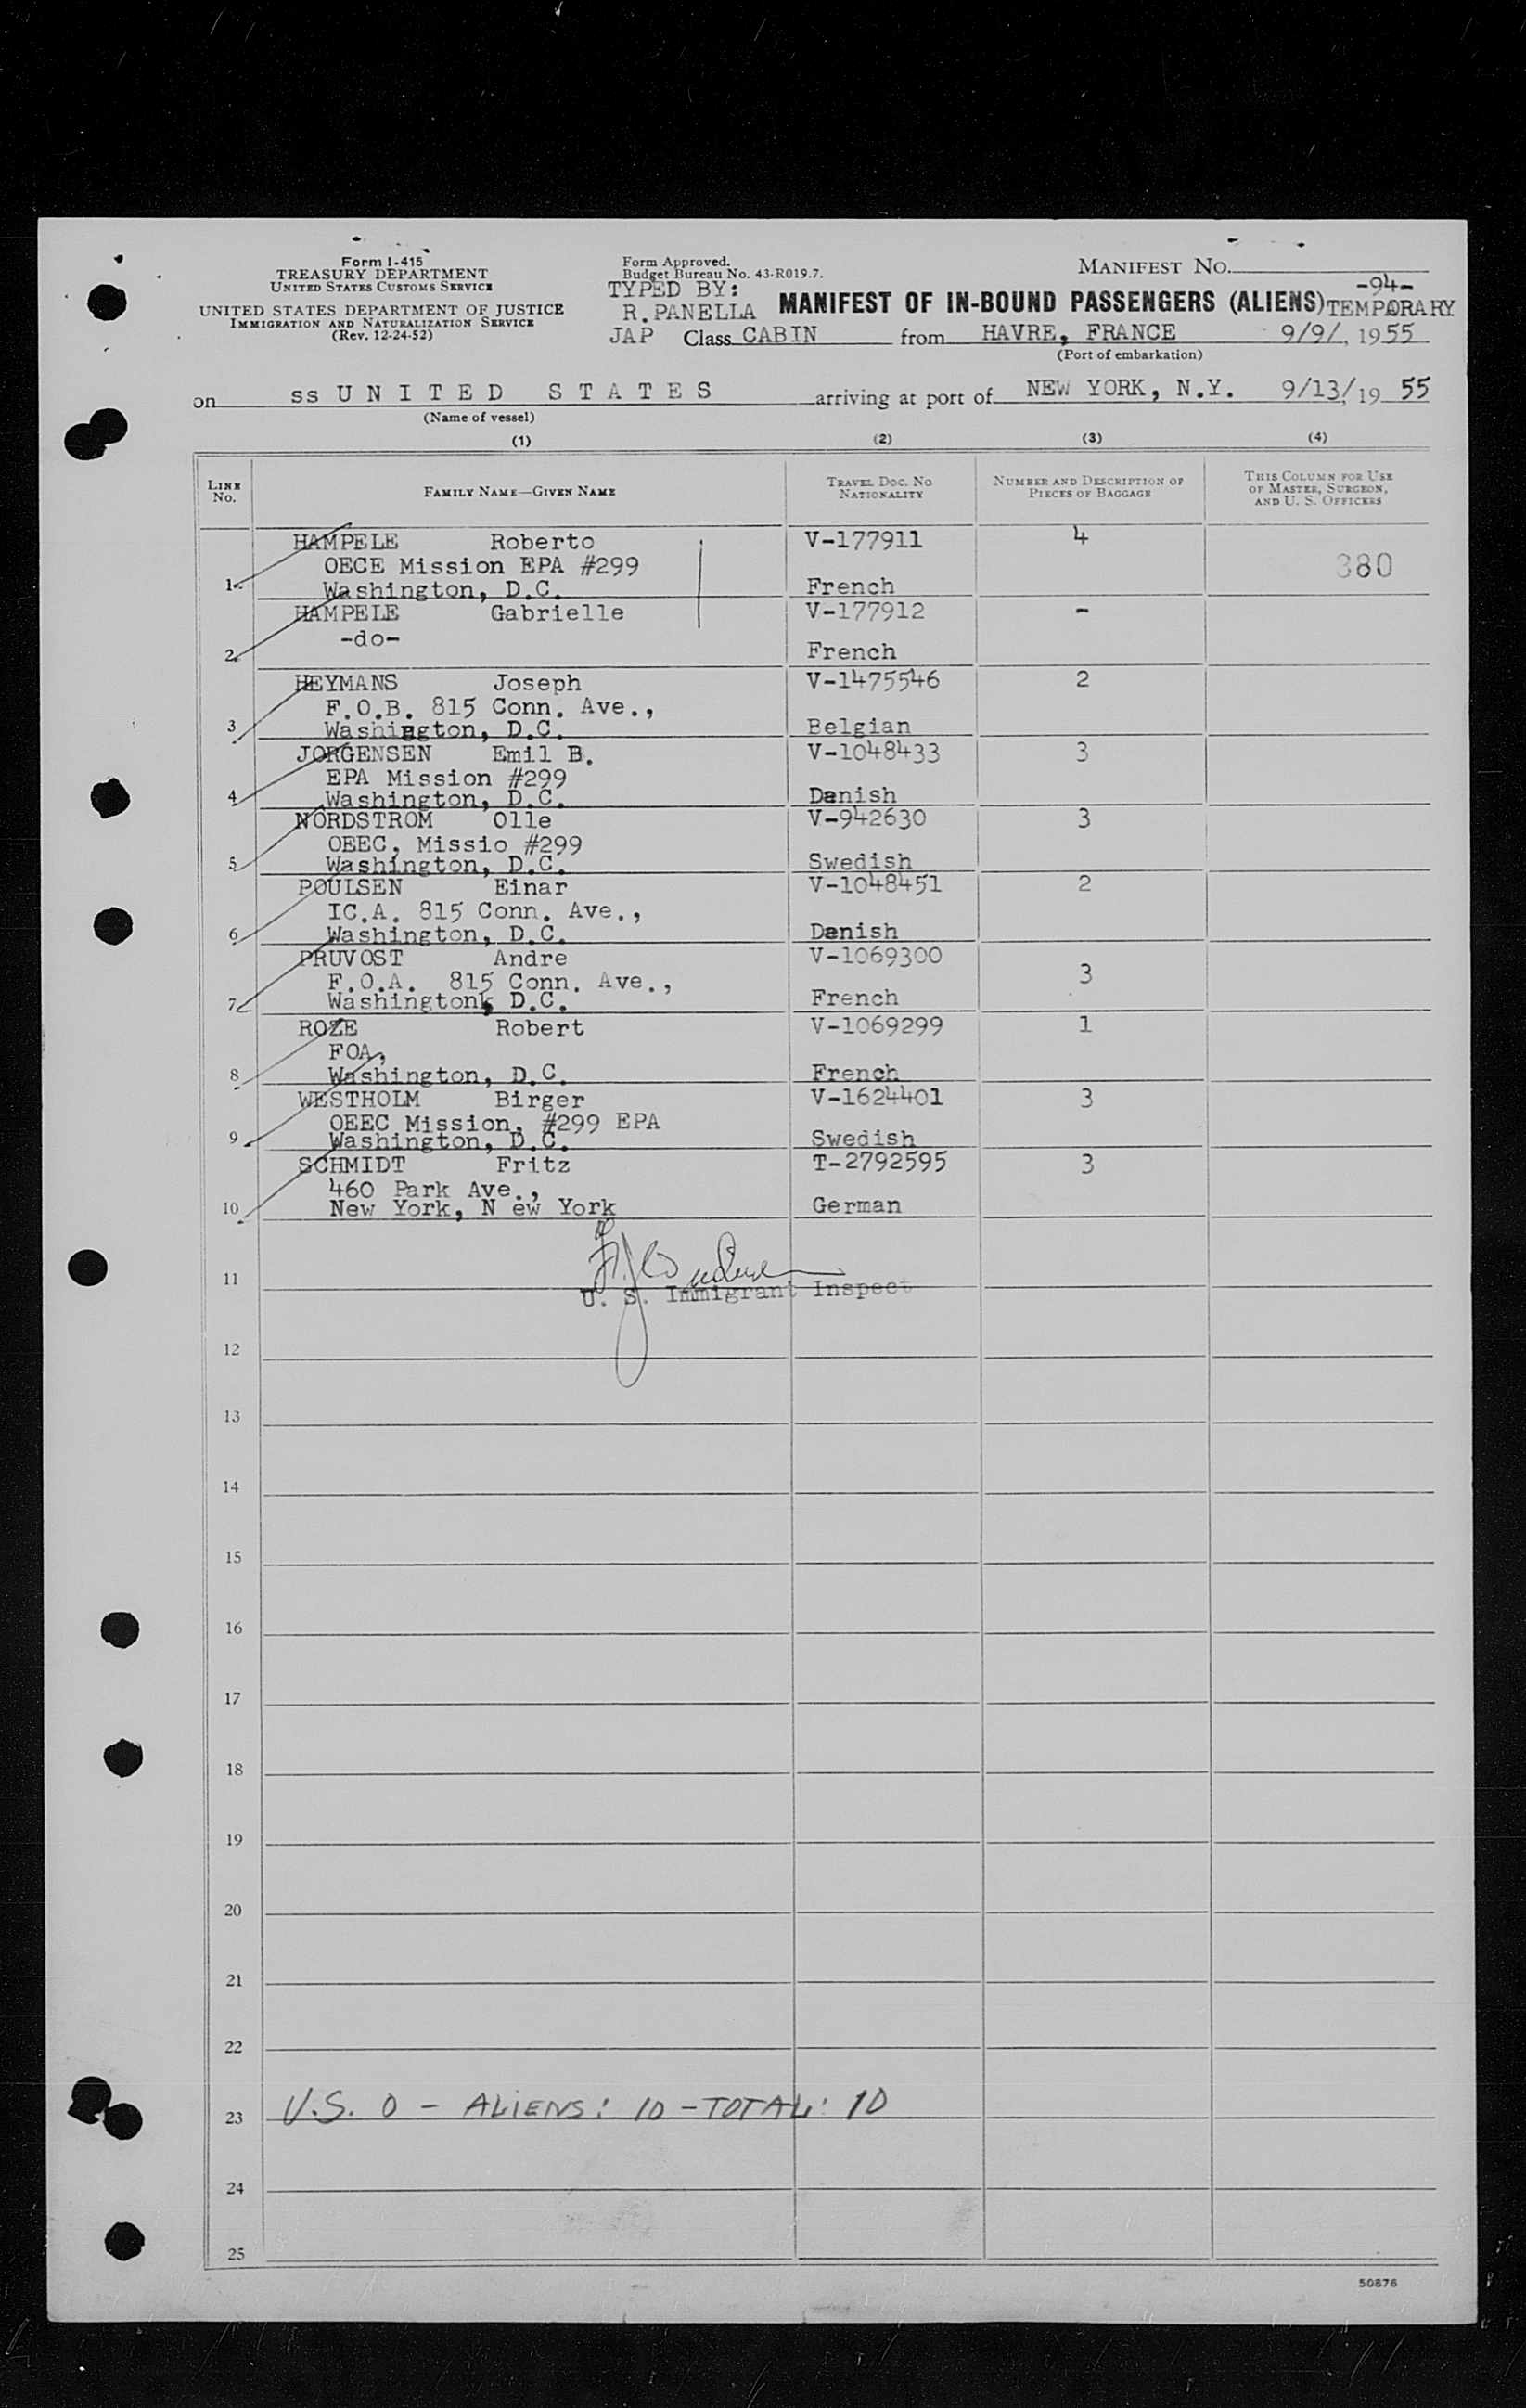 Form I-415
TREASURY DEPARTMENT
UNITED STATES CUSTOMS SERVICE
UNITED STATES DEPARTMENT OF JUSTICE
IMMIGRATION AND NATURALIZATION SERVICE
(Rev. 12-24-52)
Form Approved.
Budget Bureau No. 43-R019.7.
TYPED BY:
R.PANELLA
JAP
MANIFEST NO.
-94-
MANIFEST OF IN-BOUND PASSENGERS (ALIENS) TEMPORARY
Class CABIN from HAVRE, FRANCE 9/9/, 1955
(Port of embarkation)
on ss U N I T E D S T A T E S arriving at port of NEW YORK, N.Y. 9/13/19 55
(Name of vessel)
(1) (2) (3) (4)
LINE No. FAMILY NAME—GIVEN NAME TRAVEL DOC. NO NATIONALITY NUMBER AND DESCRIPTION OF PIECES OF BAGGAGE THIS COLUMN FOR USE OF MASTER, SURGEON, AND U. S. OFFICERS
HAMPELE Roberto V-177911 4
OECE Mission EPA #299 380
1 Washington, D.C. French
HAMPELE Gabrielle V-177912 -
-do-
2 French
HEYMANS Joseph V-1475546 2
F.O.B. 815 Conn. Ave.,
3 Washington, D.C. Belgian
JORGENSEN Emil B. V-1048433 3
EPA Mission #299
4 Washington, D.C. Danish
NORDSTROM Olle V-942630 3
OEEC, Missio #299
5 Washington, D.C. Swedish
POULSEN Einar V-1048451 2
IC.A. 815 Conn. Ave.,
6 Washington, D.C. Danish
PRUVOST Andre V-1069300
F.O.A. 815 Conn. Ave., 3
7 Washington, D.C. French
ROZE Robert V-1069299 1
FOA,
8 Washington, D.C. French
WESTHOLM Birger V-1624401 3
OEEC Mission, #299 EPA
9 Washington, D.C. Swedish
SCHMIDT Fritz T-2792595 3
460 Park Ave.,
10 New York, N ew York German
11
U. S. Immigrant Inspect
12
13
14
15
16
17
18
19
20
21
22
23 U.S. 0 - ALIENS: 10 - TOTAL: 10
24
25
50876